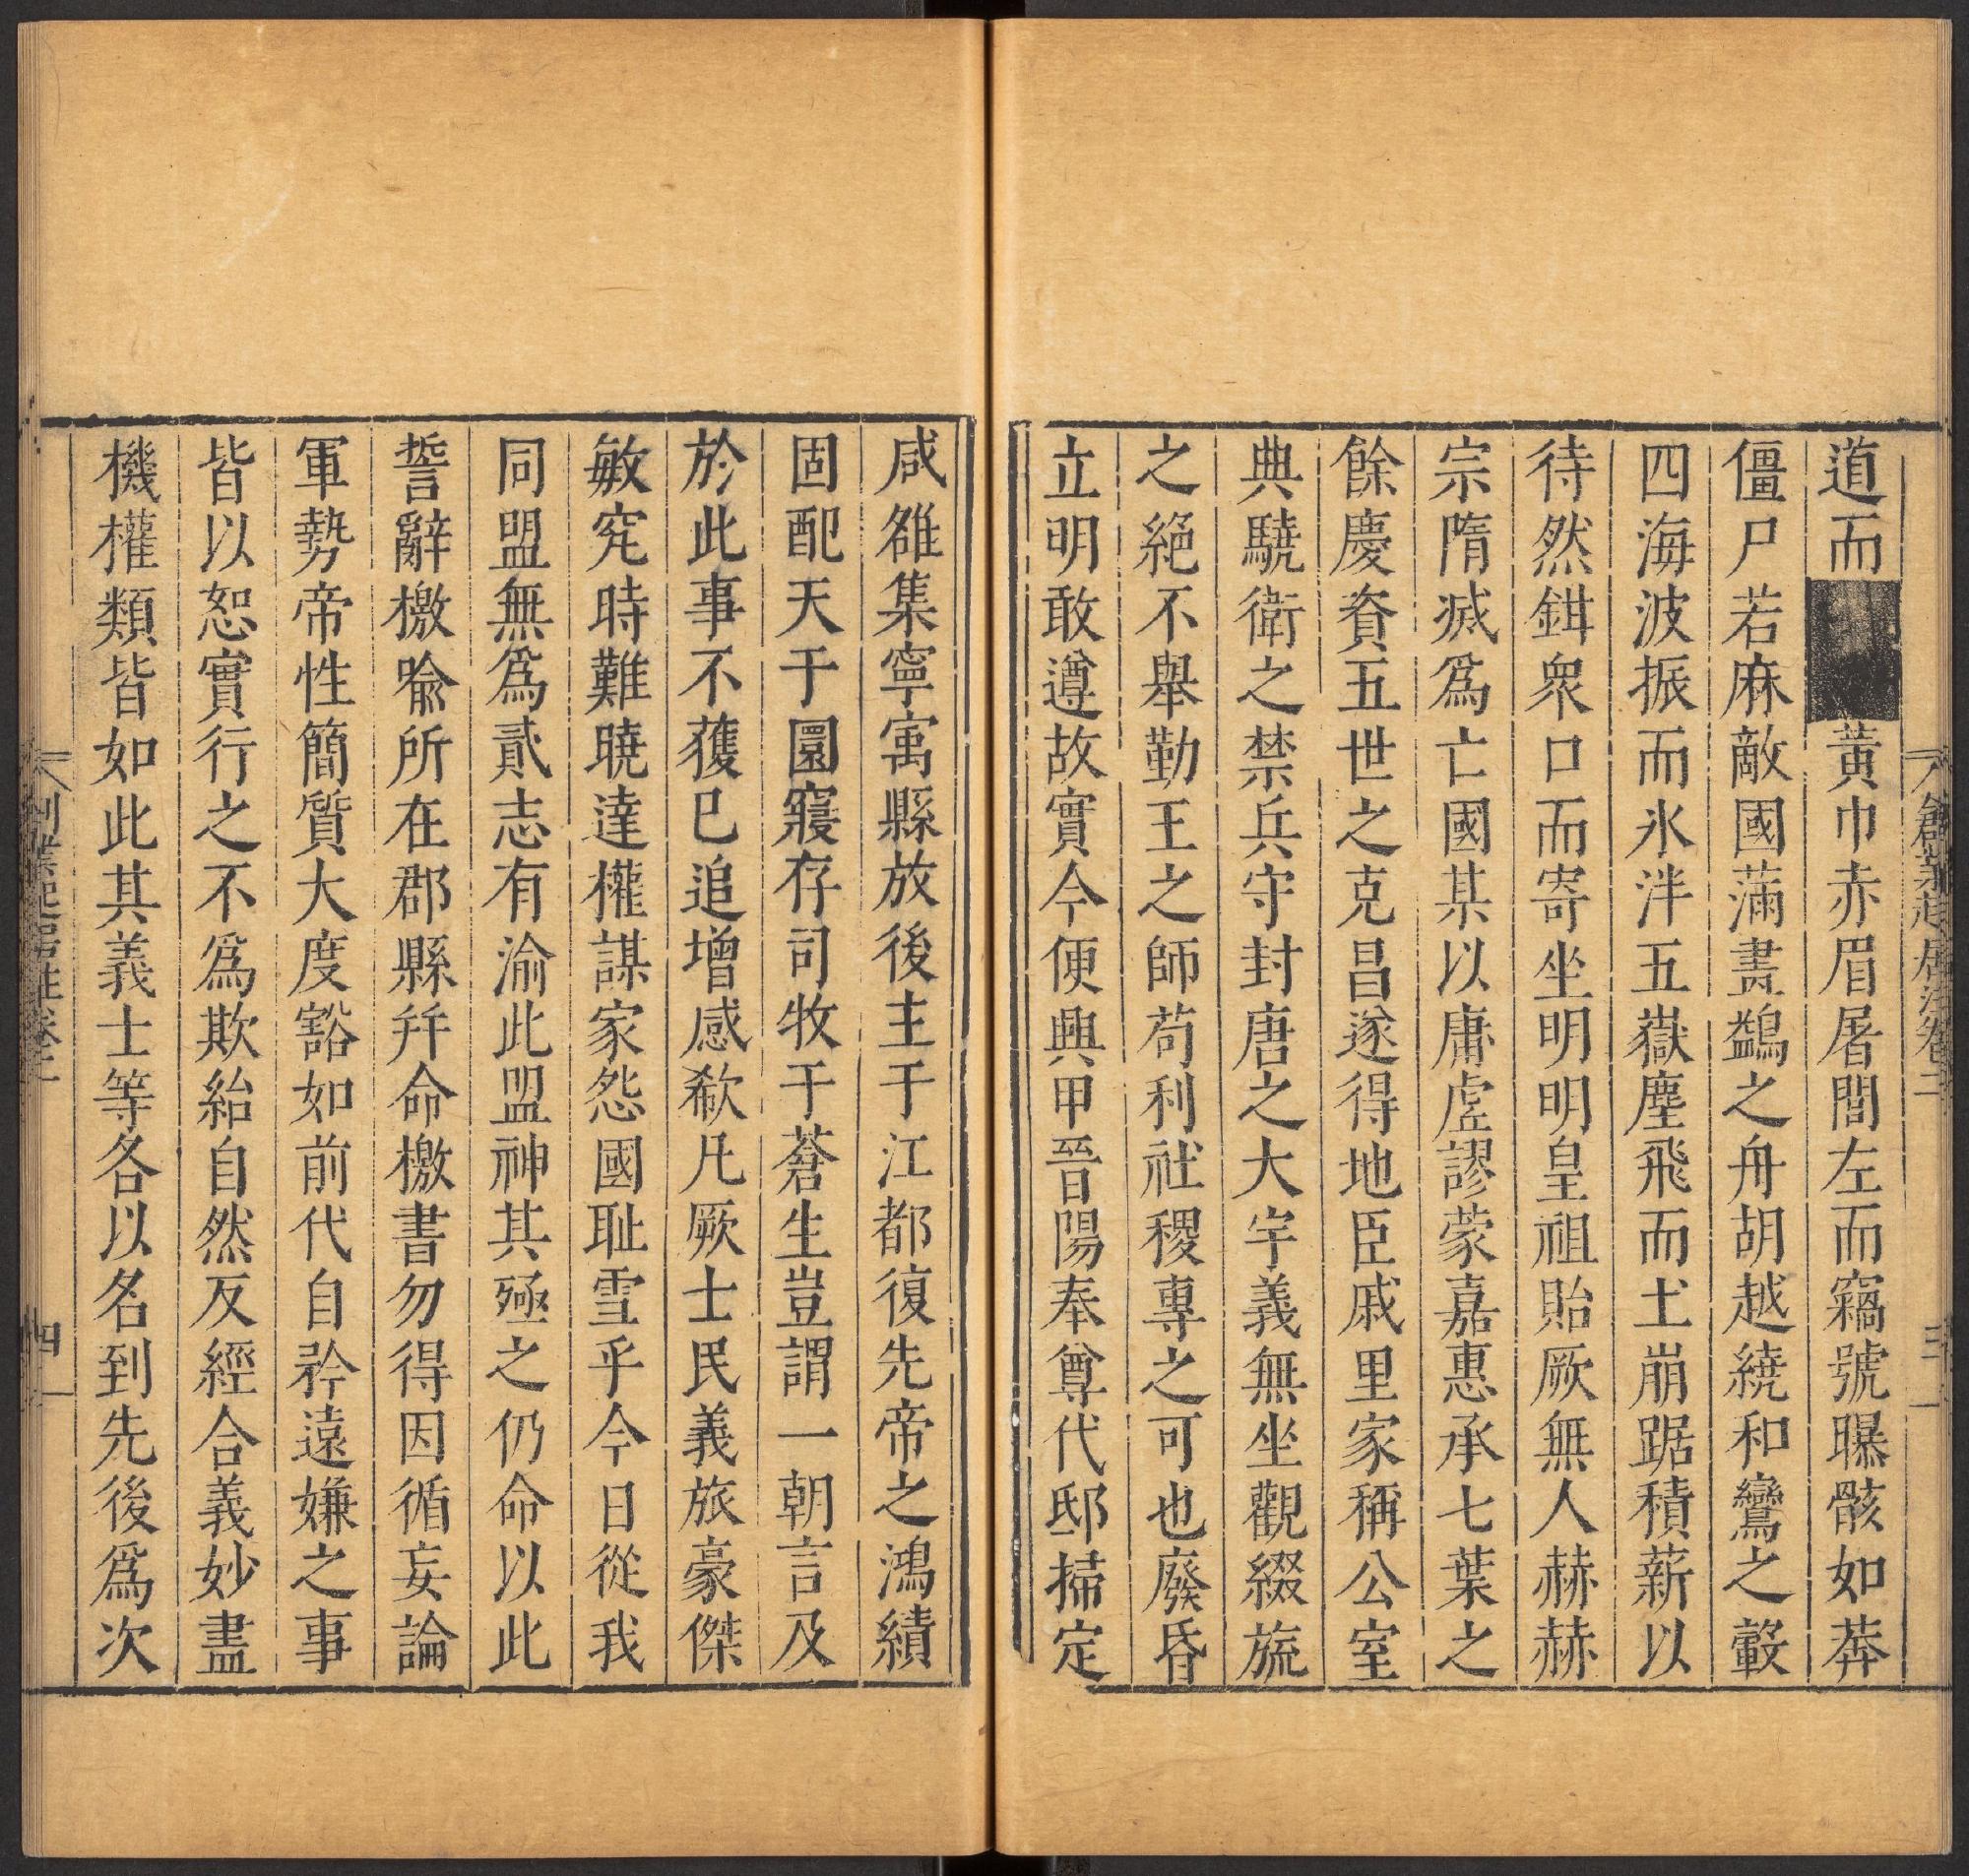 創業起居注卷二
三
道而黃巾赤眉屠閭左而竊號曝骸如莽
僵尸若麻敵國滿畫鷁之舟胡越繞和鸞之轂
四海波振而氷泮五嶽塵飛而土崩踞積薪以
待然鉗衆口而寄坐明明皇祖貽厥無人赫赫
宗隋滅爲亡國某以庸虛謬蒙嘉惠承七葉之
餘慶資五世之克昌遂得地臣戚里家稱公室
典驍衛之禁兵守封唐之大宇義無坐觀綴旒
之絕不舉勤王之師苟利社稷專之可也廢昏
立明敢遵故實今便興甲晉陽奉尊代邸掃定
咸雒集寧寓縣放後主于江都復先帝之鴻績
固配天于圜寢存司牧于蒼生豈謂一朝言及
於此事不獲已追增感欷凡厥士民義旅豪傑
敏究時難曉達權謀家怨國耻雪乎今日從我
同盟無爲貳志有渝此盟神其殛之仍命以此
誓辭檄喻所在郡縣幷命檄書勿得因循妄論
軍勢帝性簡質大度豁如前代自矜遠嫌之事
皆以恕實行之不爲欺紿自然反經合義妙盡
機權類皆如此其義士等各以名到先後爲次
創業起居注卷二
四